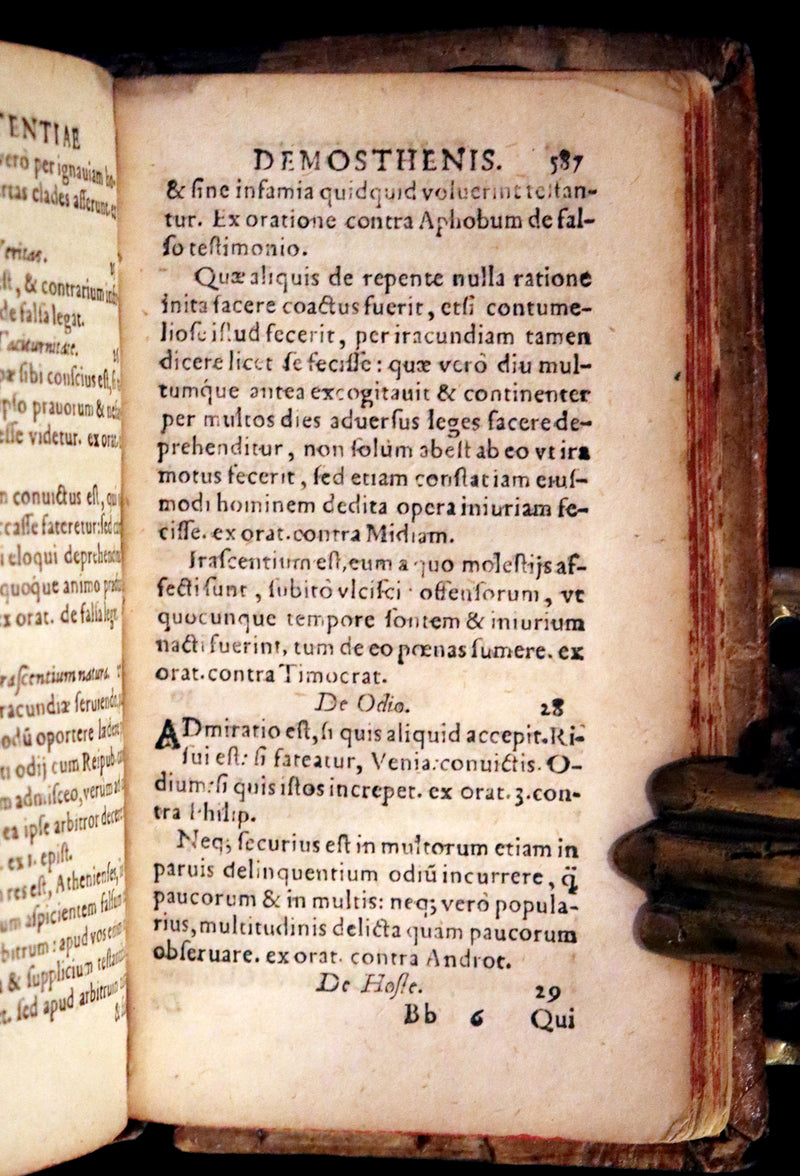 TENTIAE
vero per ignauiam
clades afferunt
Veritas.
& contrarium
de falsa legat.
Taciturnitate.
sibi conscius est,
prauorum &
esse videtur. ex orat.
conuictus est, qui
fateretur: sed
eloqui
quoque animo
ex orat. de falsa legat.
Irascentium natura.
iracundiæ
odū oportere
odij cum Reipub
admisceo, verum
ipse arbitror
ex 1. epist.
res est, Athenienses,
aspicientem
apud vos
& supplicium
sed apud arbitrum
DEMOSTHENIS. 587
& sine infamia quidquid voluerint testan-
tur. Ex oratione contra Aphobum de fal-
ſo teſtimonio.
Quæ aliquis de repente nulla ratione
inita facere coactus fuerit, etſi contume-
lioſe iſtud fecerit, per iracundiam tamen
dicere licet ſe feciſſe: quæ verò diu mul-
tumq́ue antea excogitauit & continenter
per multos dies aduerſus leges facere de-
prehenditur, non ſolùm abeſt ab eo vt ira
motus fecerit, ſed etiam conſtat iam eiuſ-
modi hominem dedita opera iniuriam fe-
ciſſe. ex orat. contra Midiam.
Iraſcentium eſt, eum a quo moleſtijs af-
fecti ſunt, ſubitò vlciſci: offenſorum, vt
quocunque tempore ſontem & iniurium
nacti fuerint, tum de eo pœnas ſumere. ex
orat. contra Timocrat.
De Odio. 28
ADmiratio eſt, ſi quis aliquid accepit. Ri-
ſui eſt: ſi fateatur, Venia: conuictis. O-
dium: ſi quis iſtos increpet. ex orat. 3. con-
tra Philip.
Neq; ſecurius eſt in multorum etiam in
paruis delinquentium odiū incurrere, q̄
paucorum & in multis: neq; verò popula-
rius, multitudinis delicta quàm paucorum
obſeruare. ex orat. contra Androt.
De Hoſte. 29
Bb 6 Qui